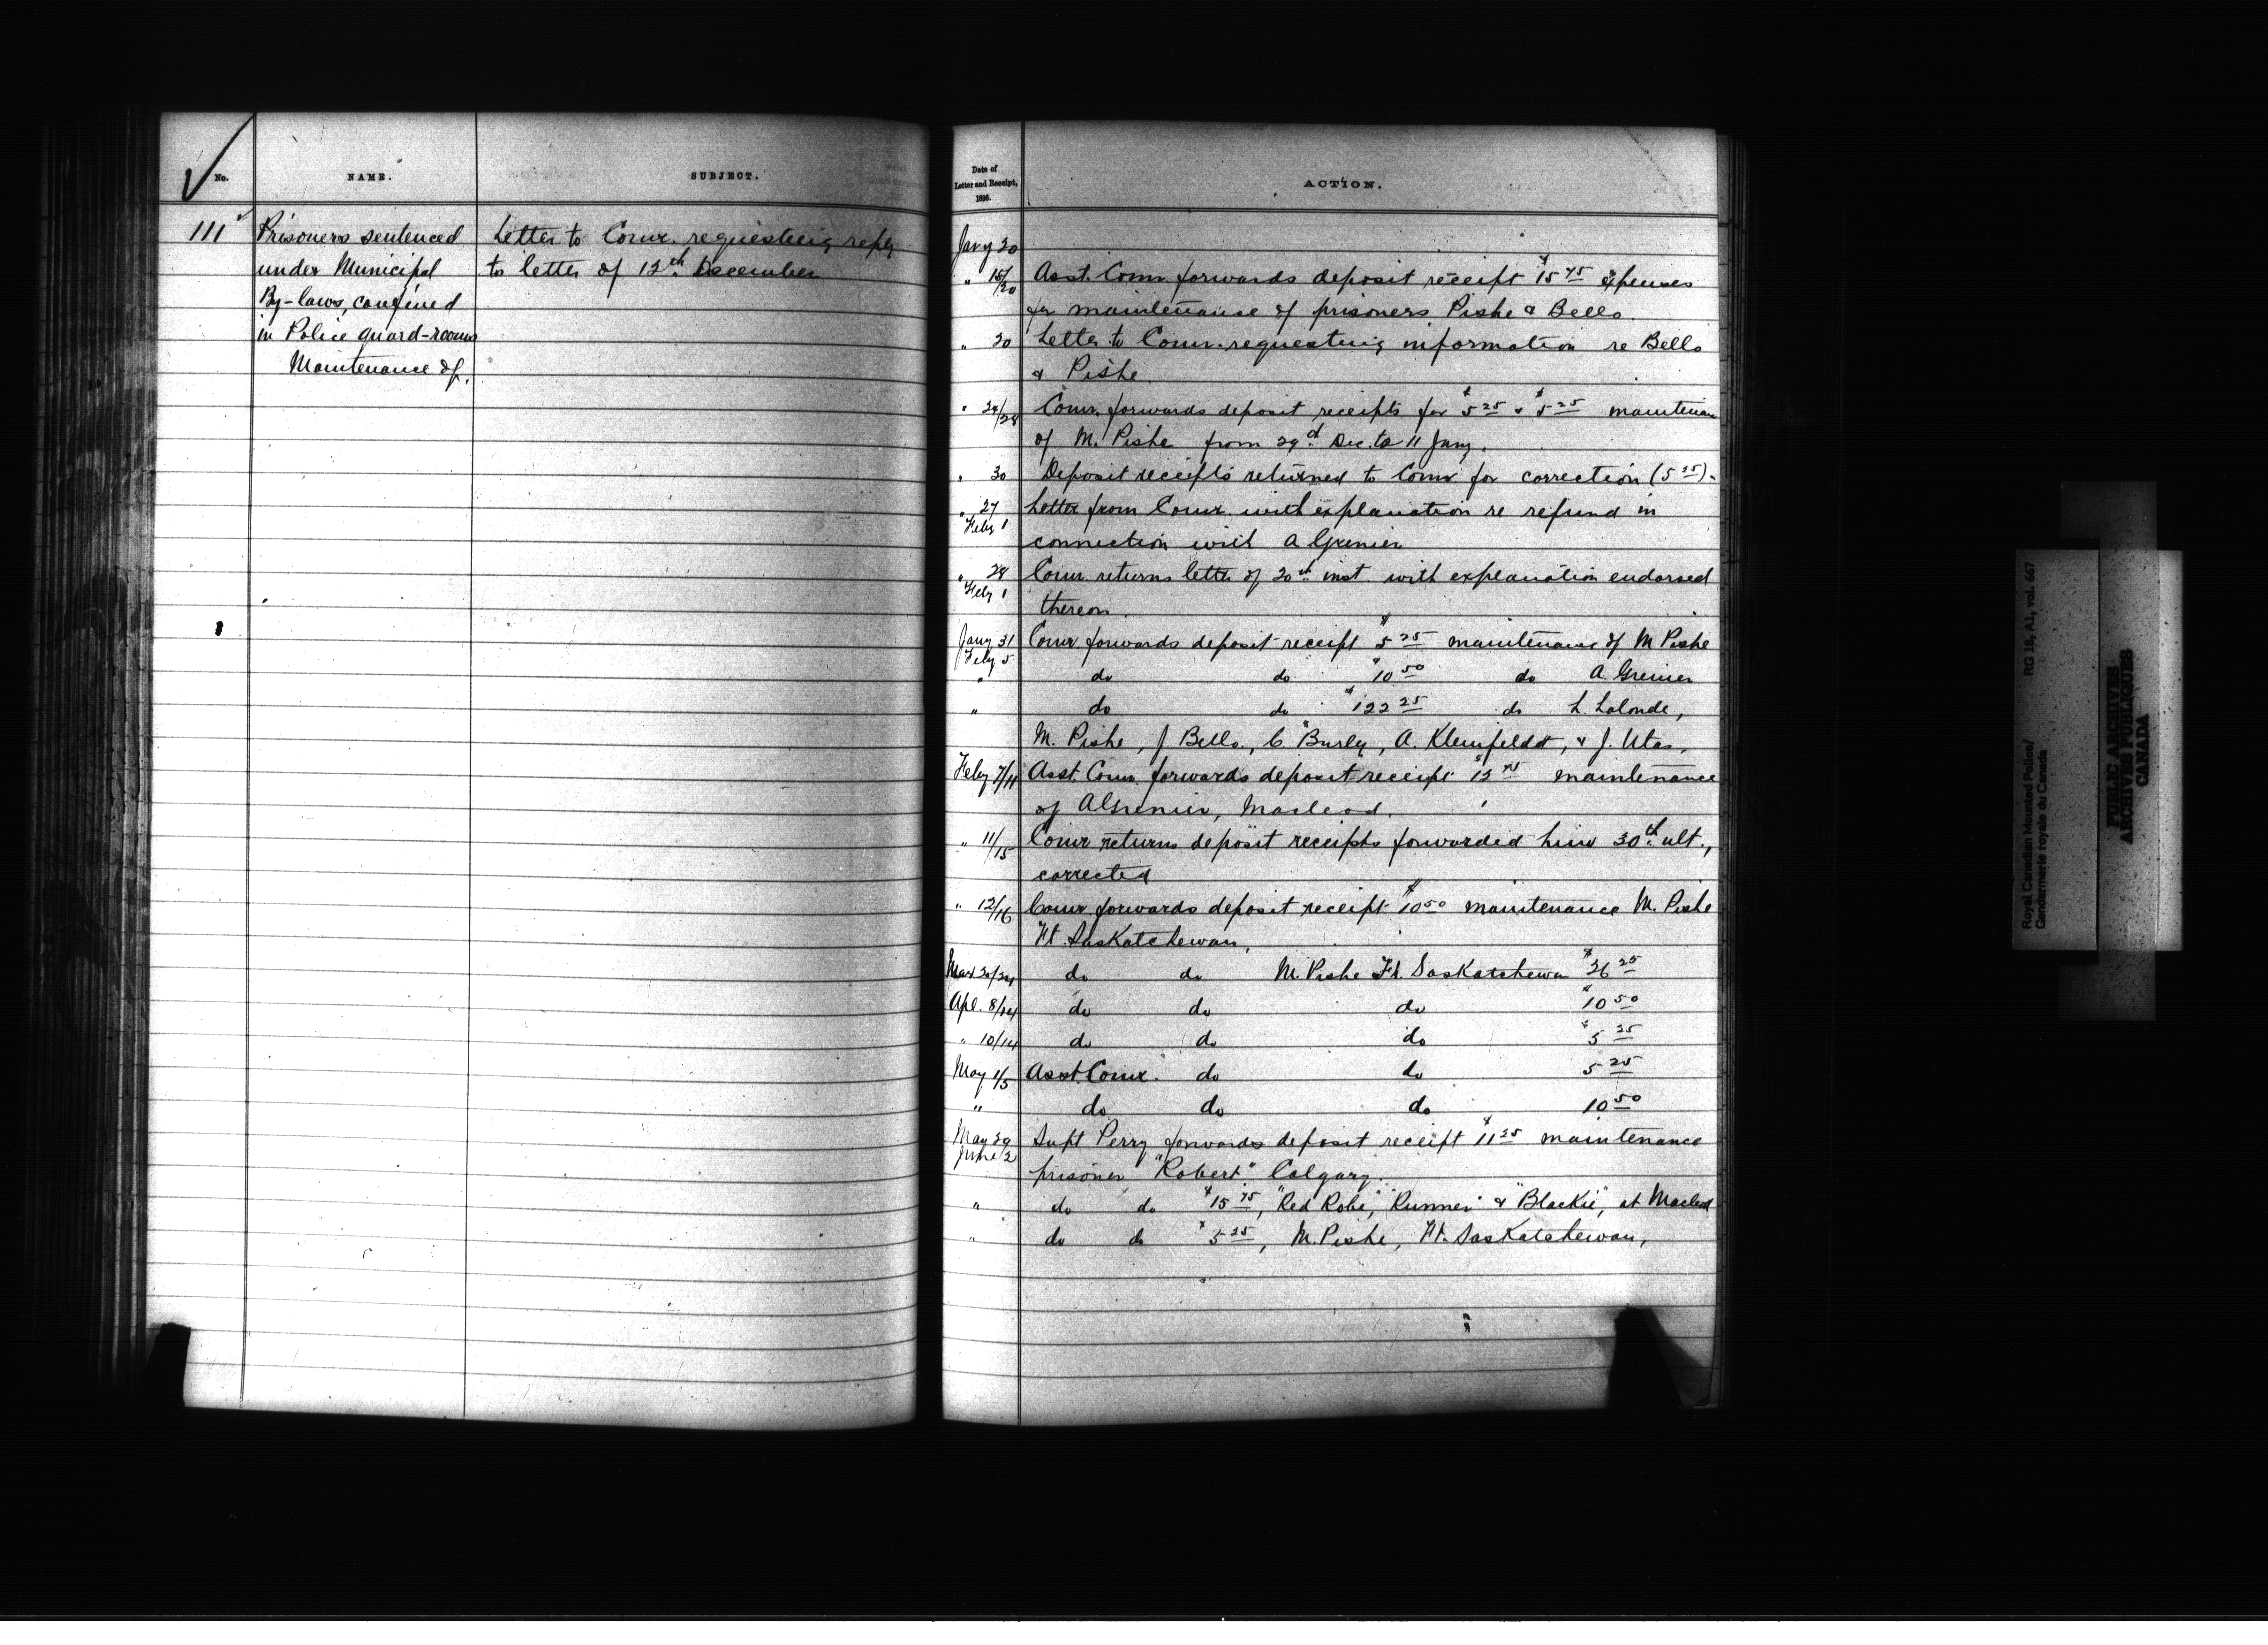 No.
NAME.
SUBJECT.
111
Prisoners sentenced
under Municipal
By-laws, confined
in Police guard-rooms
Maintenance of.
Letter to Comr. requesting reply
to letter of 12th December
Date of
Letter and Receipt,
1896.
ACTION.
Jany 20
" 15/20 Asst. Comr. forwards deposit receipt $15 75 expenses
for maintenance of prisoners Pishe & Bello.
" 20 Letter to Comr. requesting information re Bello
& Pishe.
" 24/28 Comr. forwards deposit receipts for $5 25 & $5 25 maintenan
of M. Pishe from 29d Dec. to 11 Jany.
" 30 Deposit receipts returned to Comr for correction (5 25).
" 27 Letter from Comr. with explanation re refund in
Feby 1
connection with A Grenier
" 28 Comr. returns letter of 20th inst. with explanation endorsed
Feby 1
thereon.
Jany 31 Comr forwards deposit receipt $5 25 maintenance of M Pishe
Feby 5
" do do $10 50 do A. Grenier
" do do $122 25 do L. Lalonde,
M. Pishe, J Bello, C. Burley, A. Kleinfeldt, & J. Utas.
Feby 7/11 Asst. Comr. forwards deposit receipt $12 75 maintenance
of A Grenier, Macleod.
" 11/15 Comr returns deposit receipts forwarded him 30th ult.,
corrected
" 12/16 Comr. forwards deposit receipt $10 50 maintenance M. Pishe
Ft. Saskatchewan.
Mar 20/24 do do M. Pishe Ft. Saskatchewan $26 25
Apl. 8/14 do do do $10 50
" 10/14 do do do $5 25
May 1/5 Asst. Comr. do do 5 25
" do do do 10 50
May 29 Supt Perry forwards deposit receipt $11 25 maintenance
June 2
prisoner "Robert" Calgary.
" do do $15 75, "Red Robe," Runner & "Blackie," at Macleod
" do do $5 25, M. Pishe, Ft. Saskatchewan,
Royal Canadian Mounted Police/ RG 18, A1, vol. 667
Gendarmerie royale du Canada
PUBLIC ARCHIVES
ARCHIVES PUBLIQUES
CANADA